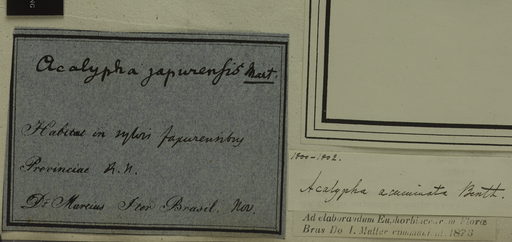 Acalypha japurensis Mart.
Habitat in sylvis japurensibus
Provinciae R. N.
Dr Martius Iter Brasil. Nov.
1800-1802.
Acalypha acuminata Benth.
Ad elaborandum Euphorbiaceas in Flora
Bras Dr J. Muller 1873